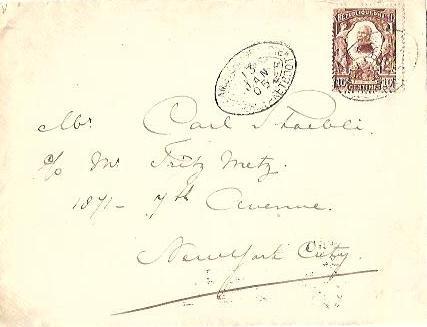 REPUBLIQUE
10 CENTIMES 10
13 JAN 05
Mr. Carl
c/o Mr Fritz Metz.
1871- 7th Avenue.
New York City